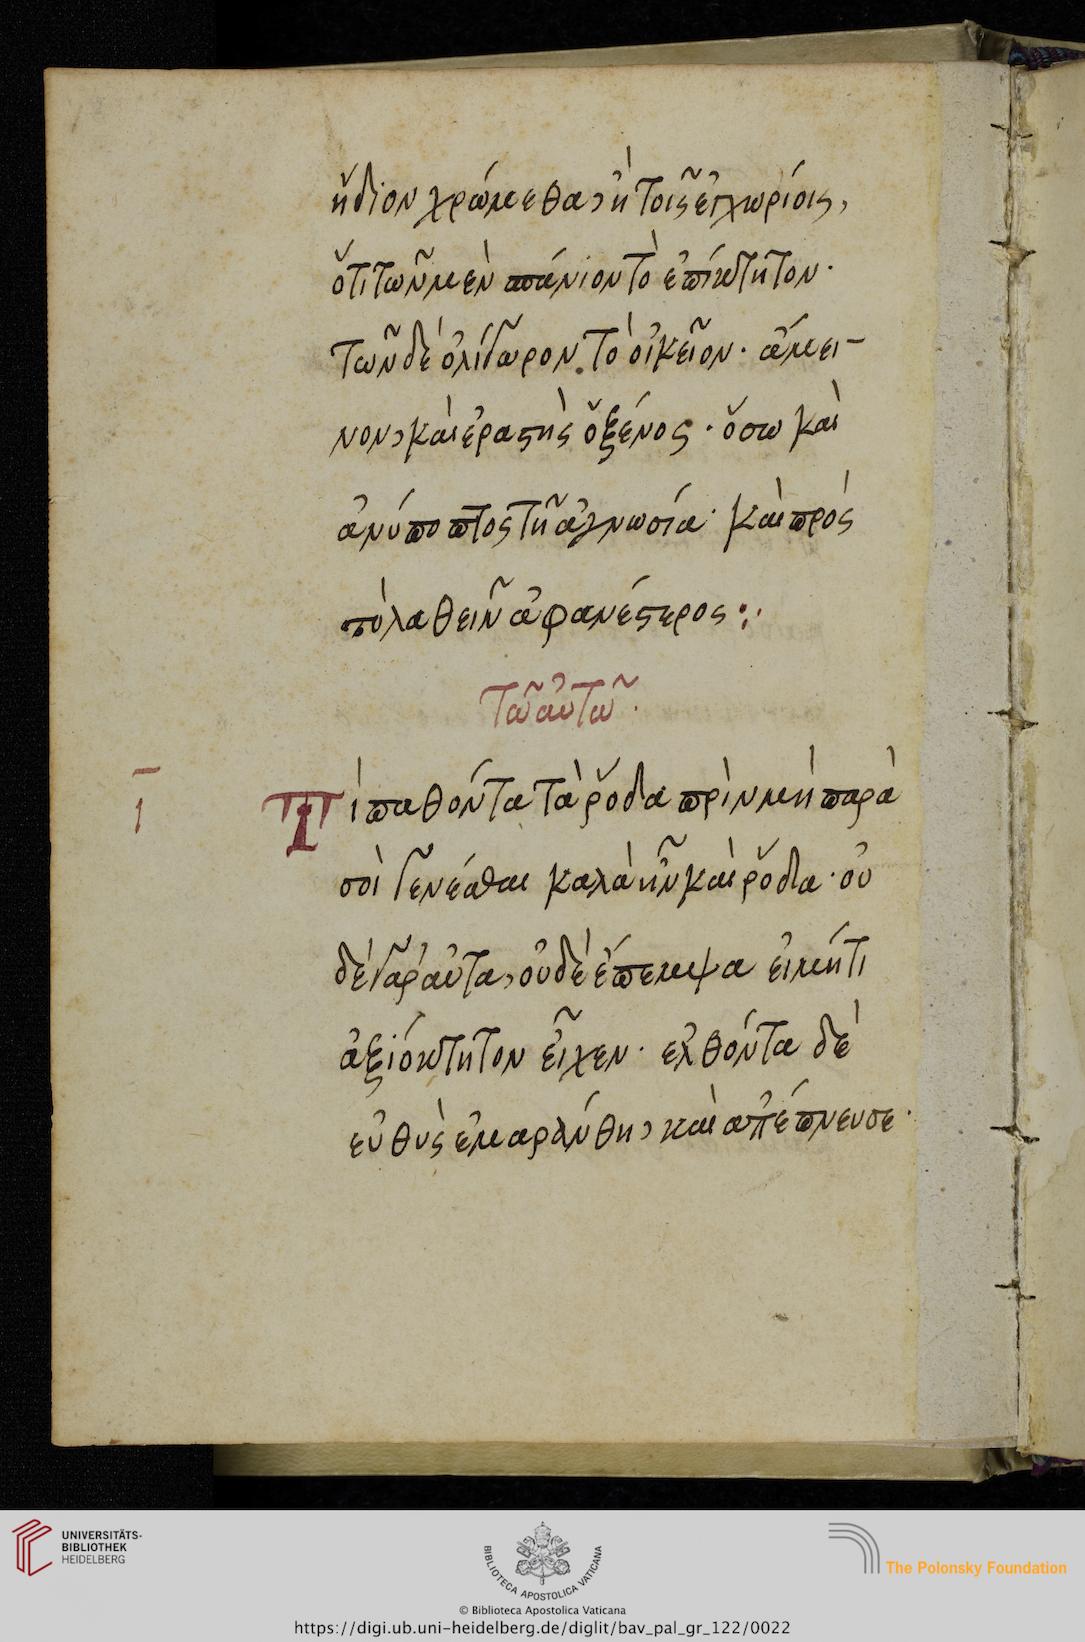 ἥδιον χρώμεθα, ἢ τοῖς ἐγχωρίοις,
ὅτι τῶν μὲν σπάνιον τὸ ἐπίκτητον·
τῶν δὲ ὀλίγωρον τὸ οἰκεῖον· ἀμεί-
νον, καὶ ἐραστὴς ὁ ξένος· ὅσω καὶ
ἀνύποπτος τῆ ἀγνωσία· καὶ πρὸς
τὸ λαθεῖν ἀφανέστερος:·
Τῶ αὐτῶ·
ι
Τί παθόντα τὰ ῥόδα πρὶν μὴ παρὰ
σοὶ γενέσθαι καλὰ ἦν καὶ ῥόδα· οὐ
δὲ γὰρ αὐτὰ, οὐδὲ ἔπεμψα εἰ μή τι
ἀξιόκτητον εἶχεν· ἐλθόντα δὲ
εὐθὺς ἐμαράνθη, καὶ ἀπέπνευσε·
UNIVERSITÄTS-
BIBLIOTHEK
HEIDELBERG
BIBLIOTECA APOSTOLICA VATICANA
The Polonsky Foundation
© Biblioteca Apostolica Vaticana
https://digi.ub.uni-heidelberg.de/diglit/bav_pal_gr_122/0022